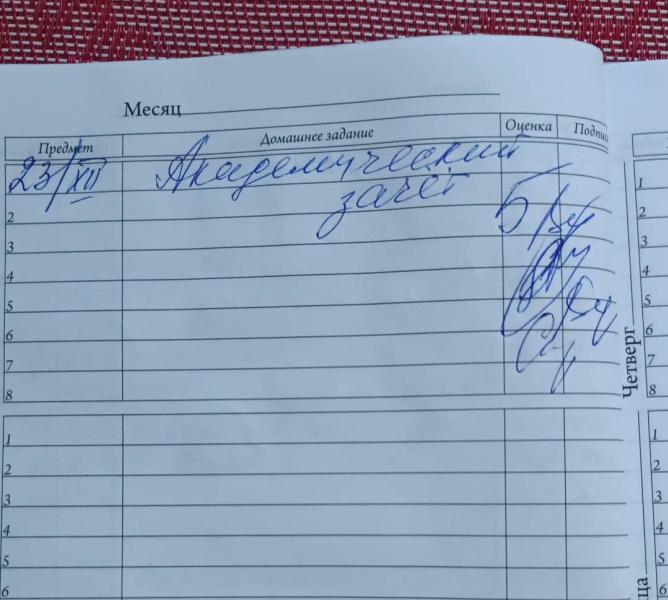 Месяц
Предмет Домашнее задание Оценка
23/XII Академический
зачёт 5
1
2
2
3
3
4
4
5
5
6
6
7
7
8
8
Четверг
1
1
2
2
3
3
4
4
5
5
6
6